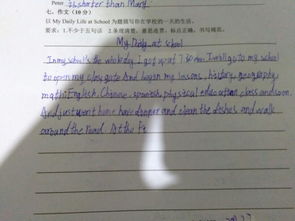 Peter is shorter than Mary.
七、作文(10分)
以 My Daily Life at School 为题描写你在学校的一天的生活。
要求：1.不少于五句话 2.条理清楚，意思连贯，标点正确，书写规范。
My Daily at school
In my school's the I get up at I will go to my school
to open my class And began my lessons, history, geography
math, English, Chinese, spanish, physical education class and soon.
And just went home have dinner and clean the dishes and walk
around the road. At the